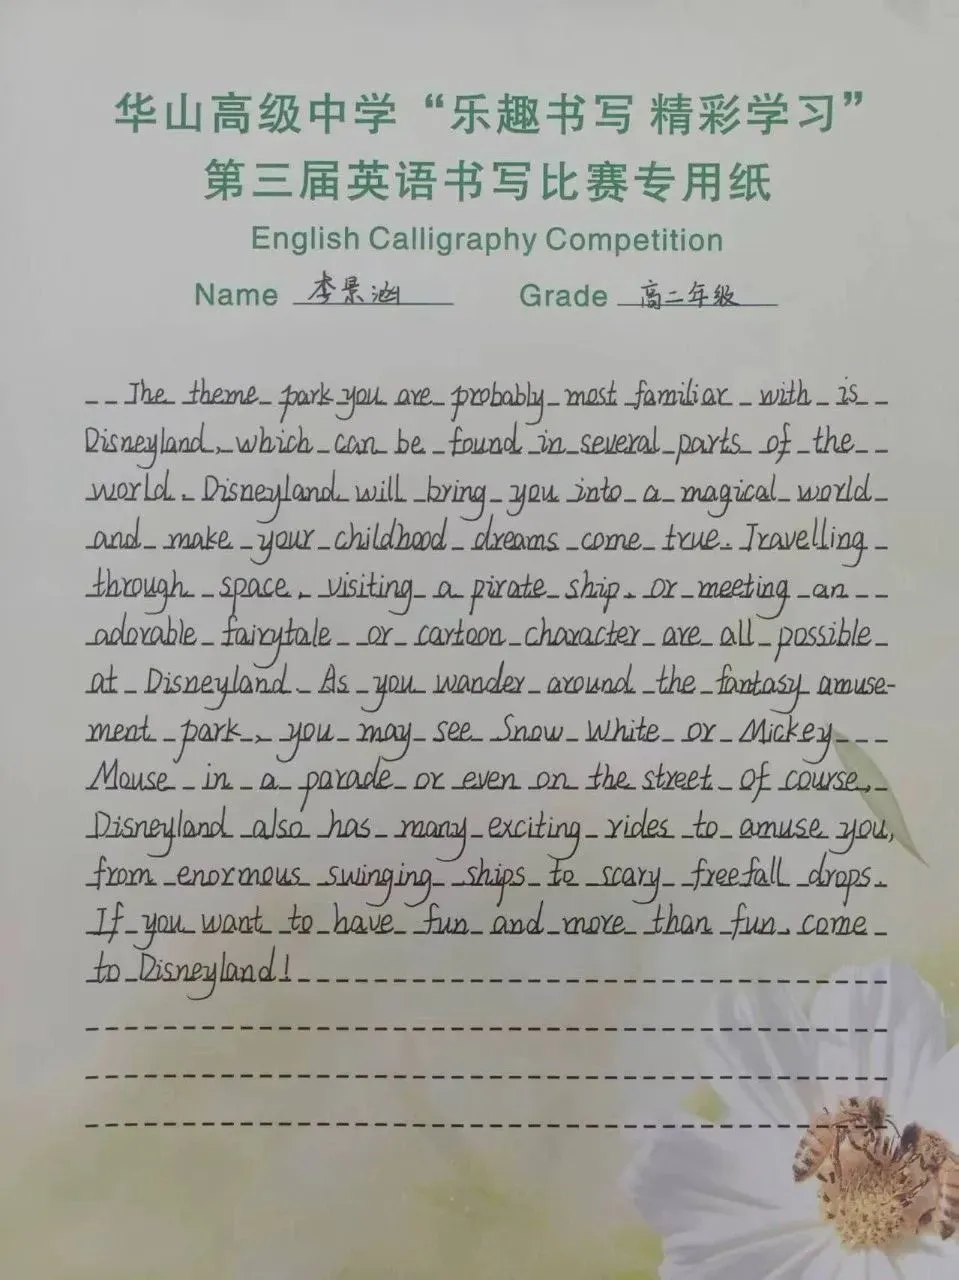 华山高级中学“乐趣书写 精彩学习”
第三届英语书写比赛专用纸
English Calligraphy Competition
Name 李景涵 Grade 高二年级
The theme park you are probably most familiar with is
Disneyland, which can be found in several parts of the
world. Disneyland will bring you into a magical world
and make your childhood dreams come true. Travelling
through space, visiting a pirate ship, or meeting an
adorable fairytale or cartoon character are all possible
at Disneyland. As you wander around the fantasy amuse-
ment park, you may see Snow White or Mickey
Mouse in a parade or even on the street. Of course,
Disneyland also has many exciting rides to amuse you,
from enormous swinging ships to scary freefall drops.
If you want to have fun and more than fun, come
to Disneyland!